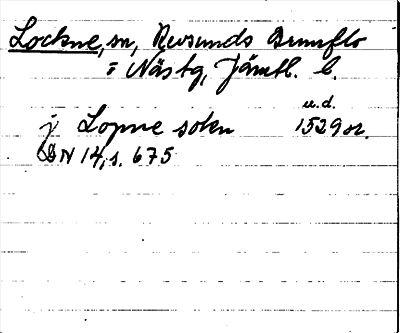 Lockne, sn, Revsunds Brunflo
o Näs tg, Jämtl. l.
u.d.
j Lopne sokn 1529 or.
DN 14, s. 675